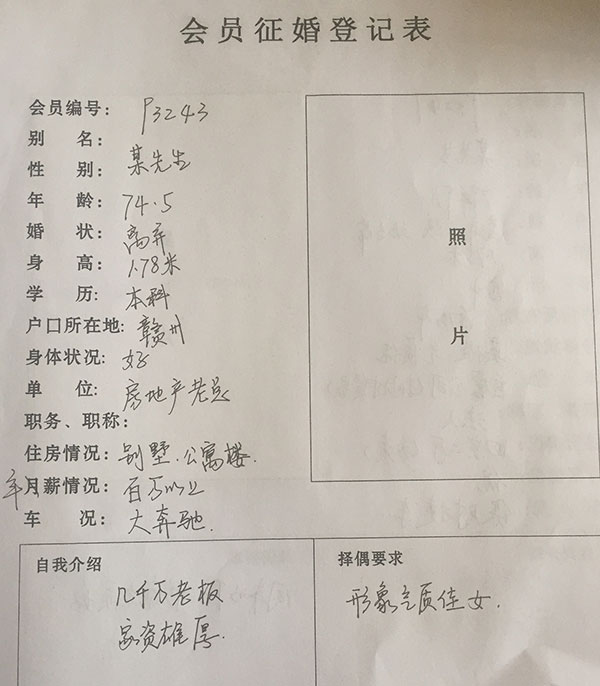 会员征婚登记表
会员编号: P3243
别 名:
性 别: 某先生
年 龄: 74.5
婚 状: 离异
身 高: 1.78米
学 历: 本科
户口所在地: 赣州
身体状况: 好
单 位: 房地产老总
职务、职称:
住房情况: 别墅.公寓楼.
年月薪情况: 百万以上
车 况: 大奔驰.
照
片
自我介绍
几千万老板
家资雄厚.
择偶要求
形象气质佳女.